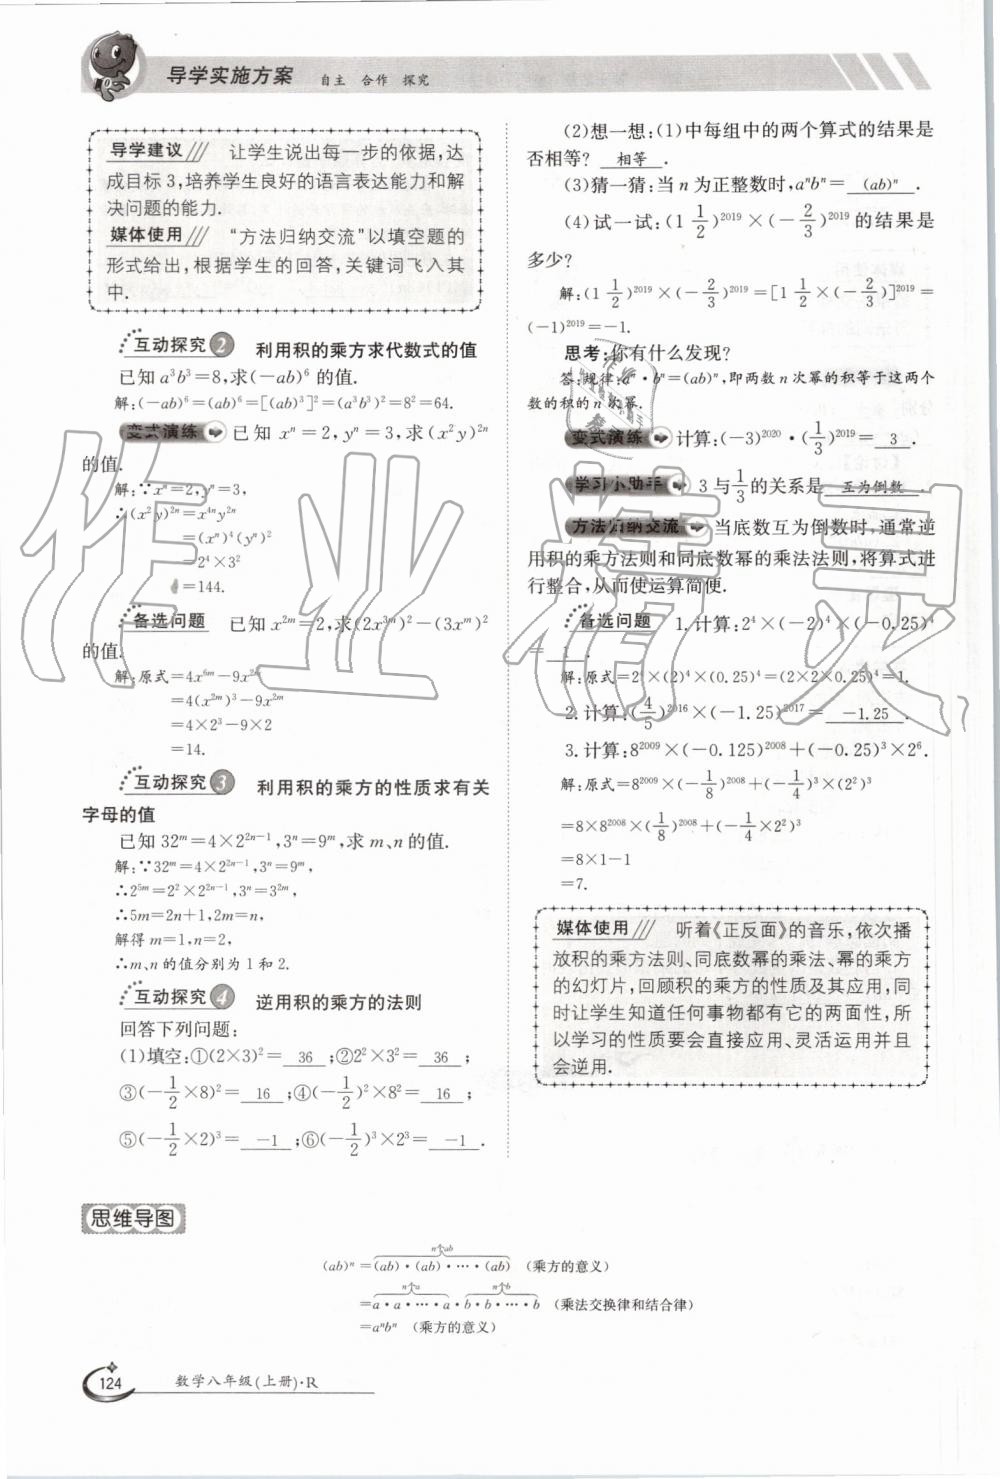 导学实施方案 自主 合作 探究
导学建议 让学生说出每一步的依据,达
成目标 3,培养学生良好的语言表达能力和解
决问题的能力.
媒体使用 “方法归纳交流”以填空题的
形式给出,根据学生的回答,关键词飞入其
中.
互动探究 2 利用积的乘方求代数式的值
已知 a³b³=8,求(-ab)⁶ 的值.
解:(-ab)⁶=(ab)⁶=[(ab)³]²=(a³b³)²=8²=64.
变式演练 已知 xⁿ=2,yⁿ=3,求(x²y)²ⁿ
的值.
解:∵xⁿ=2,yⁿ=3,
∴(x²y)²ⁿ=x⁴ⁿy²ⁿ
=(xⁿ)⁴(yⁿ)²
=2⁴×3²
=144.
备选问题 已知 x²ᵐ=2,求(2x³ᵐ)²-(3xᵐ)²
的值.
解:原式=4x⁶ᵐ-9x²ᵐ
=4(x²ᵐ)³-9x²ᵐ
=4×2³-9×2
=14.
互动探究 3 利用积的乘方的性质求有关
字母的值
已知 32ᵐ=4×2²ⁿ⁻¹,3ⁿ=9ᵐ,求 m、n 的值.
解:∵32ᵐ=4×2²ⁿ⁻¹,3ⁿ=9ᵐ,
∴2⁵ᵐ=2²×2²ⁿ⁻¹,3ⁿ=3²ᵐ,
∴5m=2n+1,2m=n,
解得 m=1,n=2,
∴m、n 的值分别为 1 和 2.
互动探究 4 逆用积的乘方的法则
回答下列问题:
(1)填空:①(2×3)²= 36 ;②2²×3²= 36 ;
③(-1/2×8)²= 16 ;④(-1/2)²×8²= 16 ;
⑤(-1/2×2)³= -1 ;⑥(-1/2)³×2³= -1 .
(2)想一想:(1)中每组中的两个算式的结果是
否相等? 相等 .
(3)猜一猜:当 n 为正整数时,aⁿbⁿ= (ab)ⁿ .
(4)试一试:(1 1/2)²⁰¹⁹×(-2/3)²⁰¹⁹ 的结果是
多少?
解:(1 1/2)²⁰¹⁹×(-2/3)²⁰¹⁹=[1 1/2×(-2/3)]²⁰¹⁹=
(-1)²⁰¹⁹=-1.
思考:你有什么发现?
答:规律:aⁿ·bⁿ=(ab)ⁿ,即两数 n 次幂的积等于这两个
数的积的 n 次幂.
变式演练 计算:(-3)²⁰²⁰·(1/3)²⁰¹⁹= 3 .
学习小助手 3 与 1/3 的关系是 互为倒数 .
方法归纳交流 当底数互为倒数时,通常逆
用积的乘方法则和同底数幂的乘法法则,将算式进
行整合,从而使运算简便.
备选问题 1. 计算:2⁴×(-2)⁴×(-0.25)⁴
= 1 .
解:原式=2⁴×(2)⁴×(0.25)⁴=(2×2×0.25)⁴=1.
2. 计算:(4/5)²⁰¹⁶×(-1.25)²⁰¹⁷= -1.25 .
3. 计算:8²⁰⁰⁹×(-0.125)²⁰⁰⁸+(-0.25)³×2⁶.
解:原式=8²⁰⁰⁹×(-1/8)²⁰⁰⁸+(-1/4)³×(2²)³
=8×8²⁰⁰⁸×(1/8)²⁰⁰⁸+(-1/4×2²)³
=8×1-1
=7.
媒体使用 听着《正反面》的音乐,依次播
放积的乘方法则、同底数幂的乘法、幂的乘方
的幻灯片,回顾积的乘方的性质及其应用,同
时让学生知道任何事物都有它的两面性,所
以学习的性质要会直接应用、灵活运用并且
会逆用.
思维导图
n个ab
(ab)ⁿ =(ab)·(ab)·…·(ab) (乘方的意义)
n个a n个b
=a·a·…·a·b·b·…·b (乘法交换律和结合律)
=aⁿbⁿ (乘方的意义)
124 数学八年级(上册)·R
作业精灵